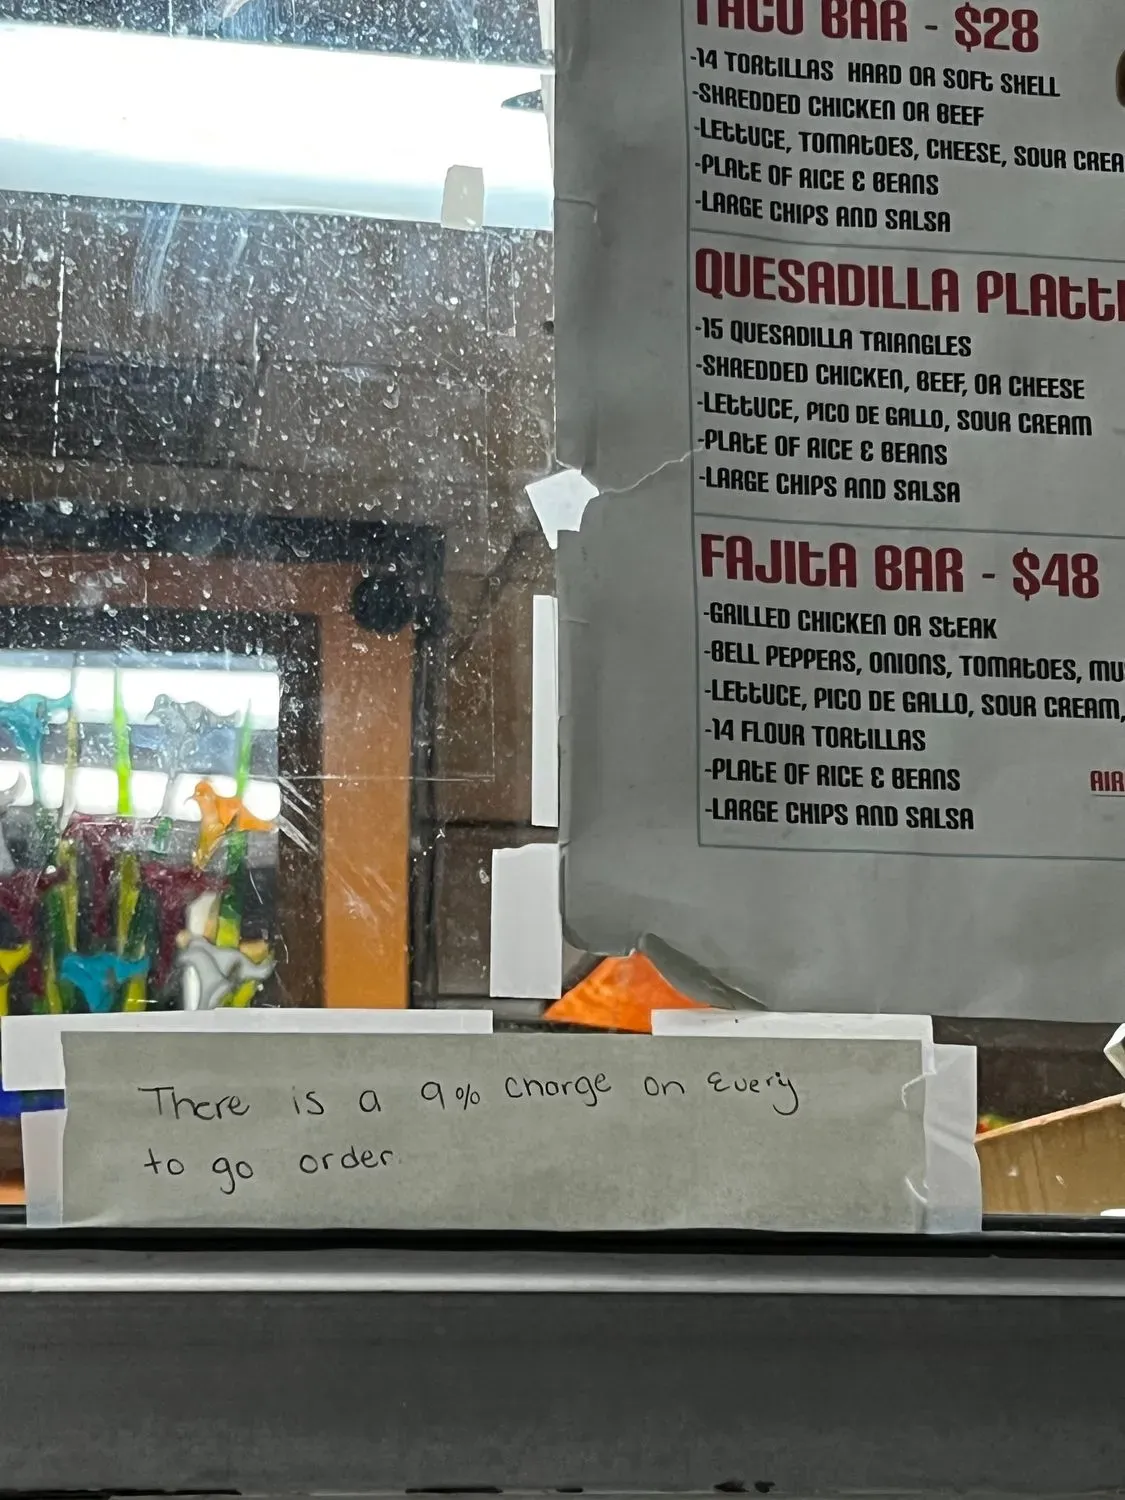 TACO BAR - $28
-14 TORTILLAS HARD OR SOFT SHELL
-SHREDDED CHICKEN OR BEEF
-LETTUCE, TOMATOES, CHEESE, SOUR
-PLATE OF RICE & BEANS
-LARGE CHIPS AND SALSA
QUESADILLA
-15 QUESADILLA TRIANGLES
-SHREDDED CHICKEN, BEEF, OR CHEESE
-LETTUCE, PICO DE GALLO, SOUR CREAM
-PLATE OF RICE & BEANS
-LARGE CHIPS AND SALSA
FAJITA BAR - $48
-GRILLED CHICKEN OR STEAK
-BELL PEPPERS, ONIONS, TOMATOES,
-LETTUCE, PICO DE GALLO, SOUR CREAM,
-14 FLOUR TORTILLAS
-PLATE OF RICE & BEANS
-LARGE CHIPS AND SALSA
There is a 9% charge on Every
to go order